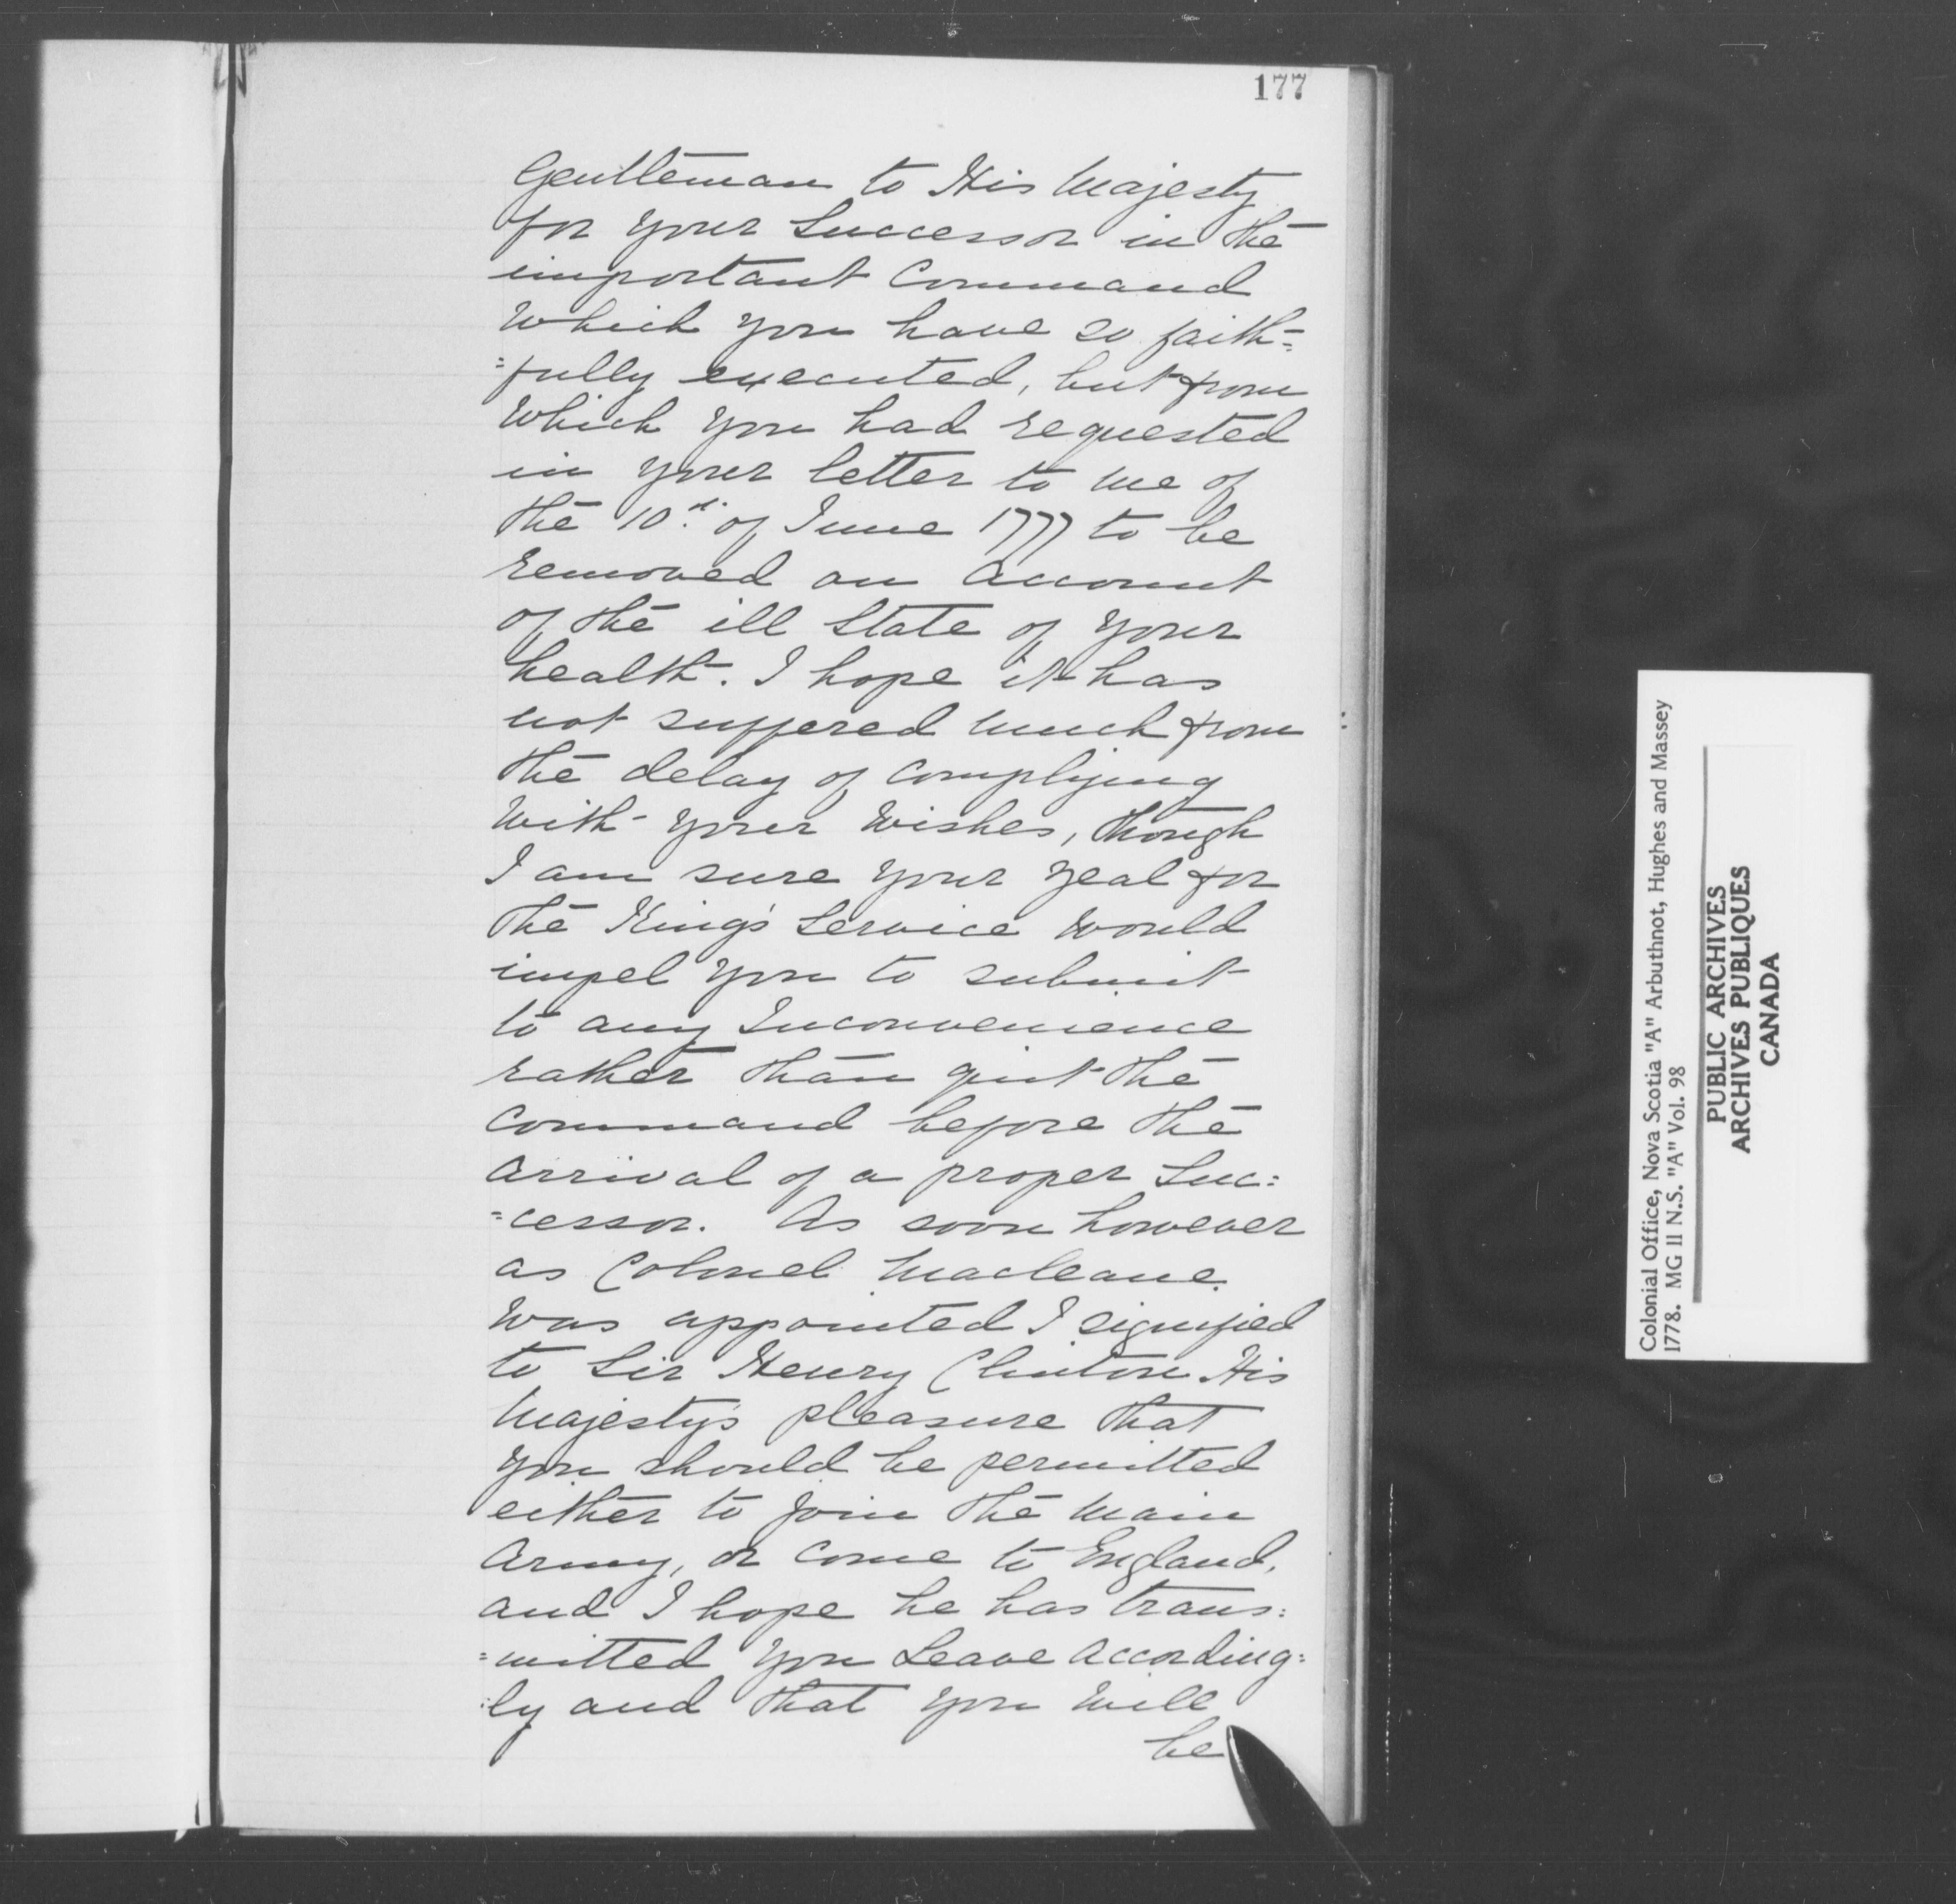 177
Gentleman to His Majesty
for your Successor in the
important Command
which you have so faith=
=fully executed, but from
which you had requested
in your letter to me of
the 10th of June 1777 to be
removed on account
of the ill State of your
health. I hope it has
not suffered much from
the delay of complying
with your wishes, though
I am sure your zeal for
the King's Service would
impel you to submit
to any Inconvenience
rather than quit the
Command before the
arrival of a proper Suc:
=cessor. As soon however
as Colonel Macleane
was appointed I signified
to Sir Henry Clinton His
Majesty's pleasure that
you should be permitted
either to join the main
Army, or come to England,
and I hope he has trans:
=mitted you Leave according:
:ly and that you will
be
Colonial Office, Nova Scotia "A" Arbuthnot, Hughes and Massey
1778. MG 11 N.S. "A" Vol. 98
PUBLIC ARCHIVES
ARCHIVES PUBLIQUES
CANADA